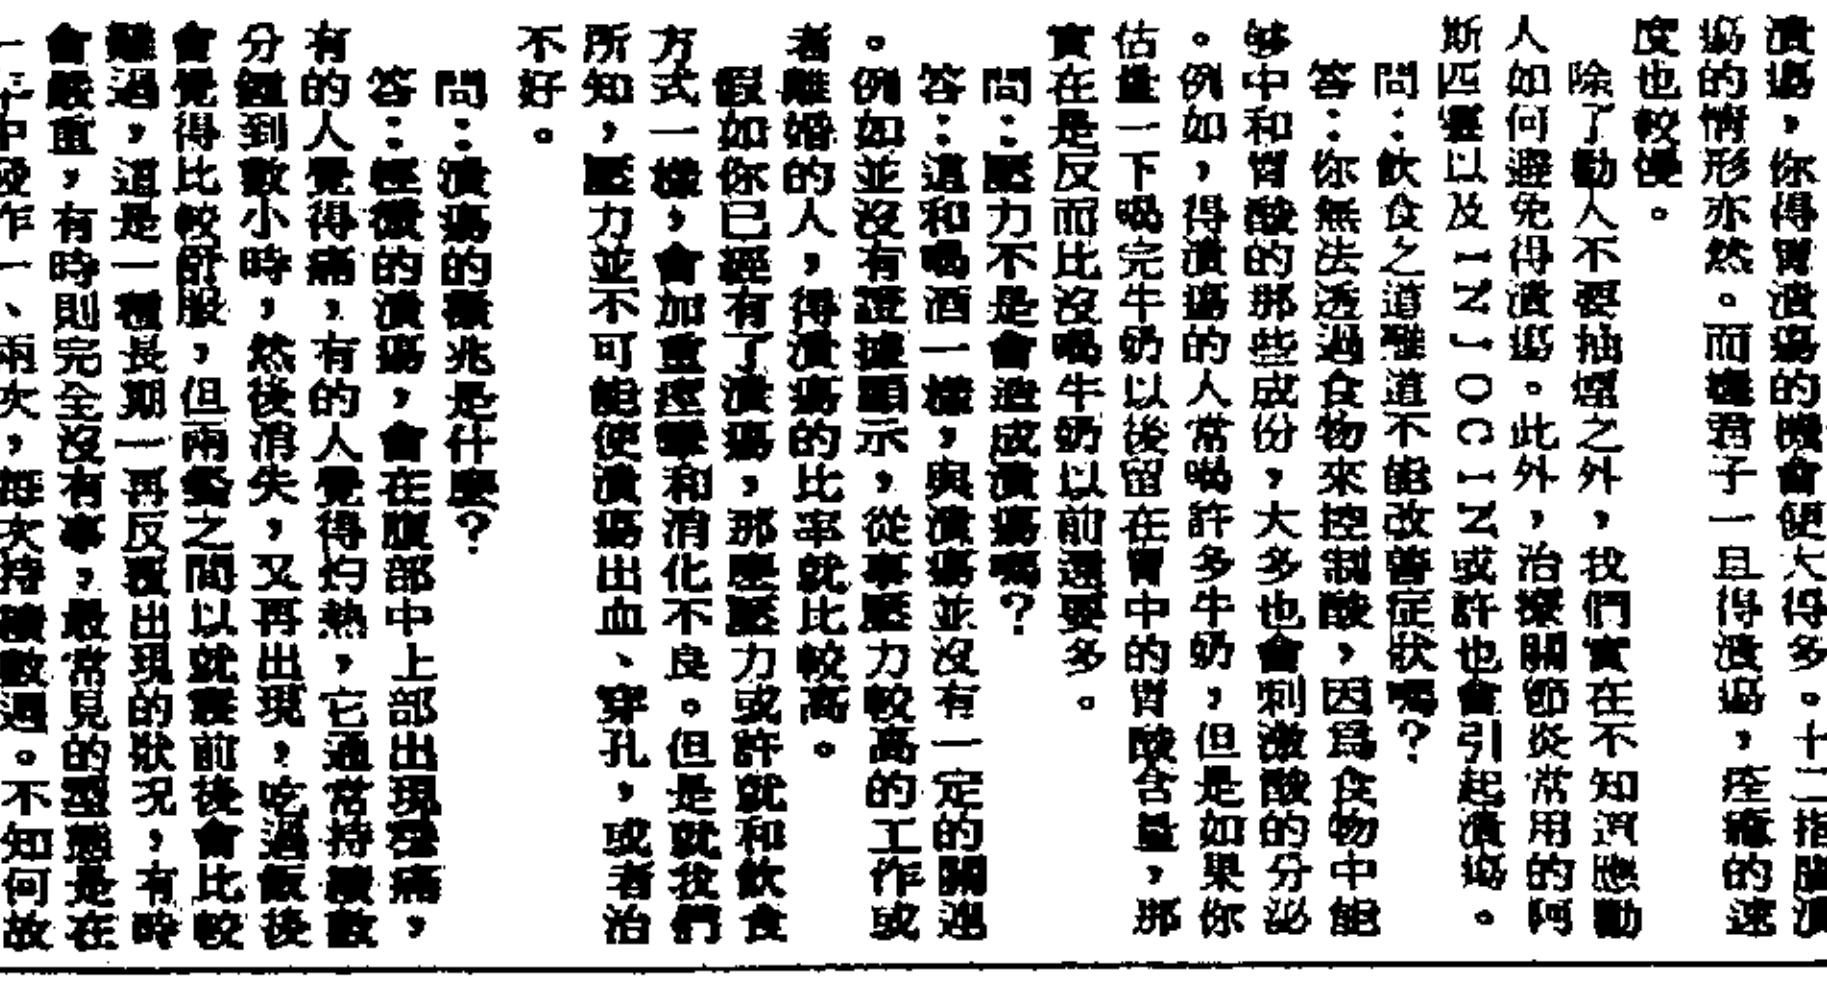 潰瘍，你得胃潰瘍的機會便大得多。十二指腸潰
瘍的情形亦然。而癮君子一旦得潰瘍，痊癒的速
度也較慢。
除了勸人不要抽煙之外，我們實在不知道應勸
人如何避免得潰瘍。此外，治療關節炎常用的阿
斯匹靈以及INJOCIN或許也會引起潰瘍。
問：飲食之道難道不能改善症狀嗎？
答：你無法透過食物來控制酸，因爲食物中能
够中和胃酸的那些成份，大多也會刺激酸的分泌
。例如，得潰瘍的人常喝許多牛奶，但是如果你
估量一下喝完牛奶以後留在胃中的胃酸含量，那
實在是反而比沒喝牛奶以前還要多。
問：壓力不是會造成潰瘍嗎？
答：這和喝酒一樣，與潰瘍並沒有一定的關連
。例如並沒有證據顯示，從事壓力較高的工作或
者離婚的人，得潰瘍的比率就比較高。
假如你已經有了潰瘍，那麼壓力或許就和飲食
方式一樣，會加重痙攣和消化不良。但是就我們
所知，壓力並不可能使潰瘍出血、穿孔，或者治
不好。
問：潰瘍的徵兆是什麼？
答：輕微的潰瘍，會在腹部中上部出現疼痛，
有的人覺得痛，有的人覺得灼熱，它通常持續數
分鐘到數小時，然後消失，又再出現，吃過飯後
會覺得比較舒服，但兩餐之間以就寢前後會比較
難過，這是一種長期一再反覆出現的狀況，有時
會嚴重，有時則完全沒有事，最常見的型態是在
一年中發作一、兩次，每次持續數週。不知何故